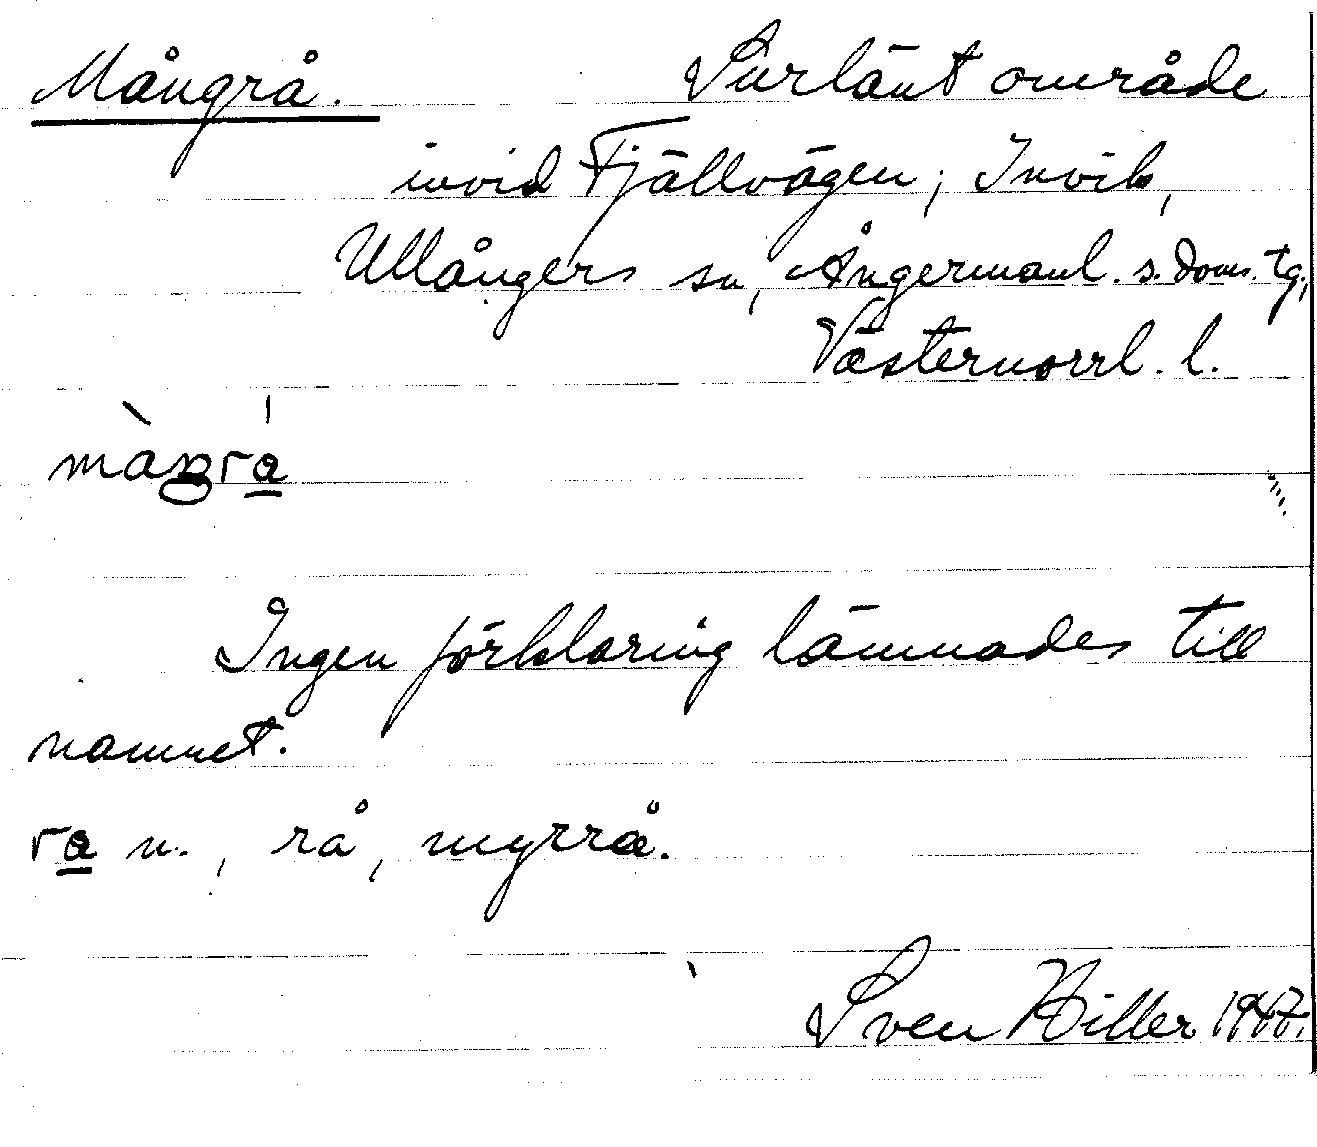 Mångrå. Surlänt område
invid Fjällvägen, Invik,
Ullångers sn, Ångermanl. s. doms. tg,
Västernorrl. l.
màŋrá̱
Ingen förklaring lämnades till
namnet.
ra̱ n., rå, myrrå.
Sven Hiller 1947.